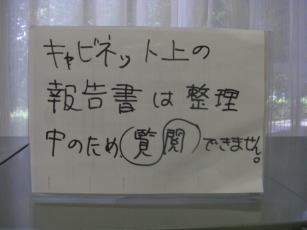 キャビネット上の
報告書は整理
中のため覧閲できません。